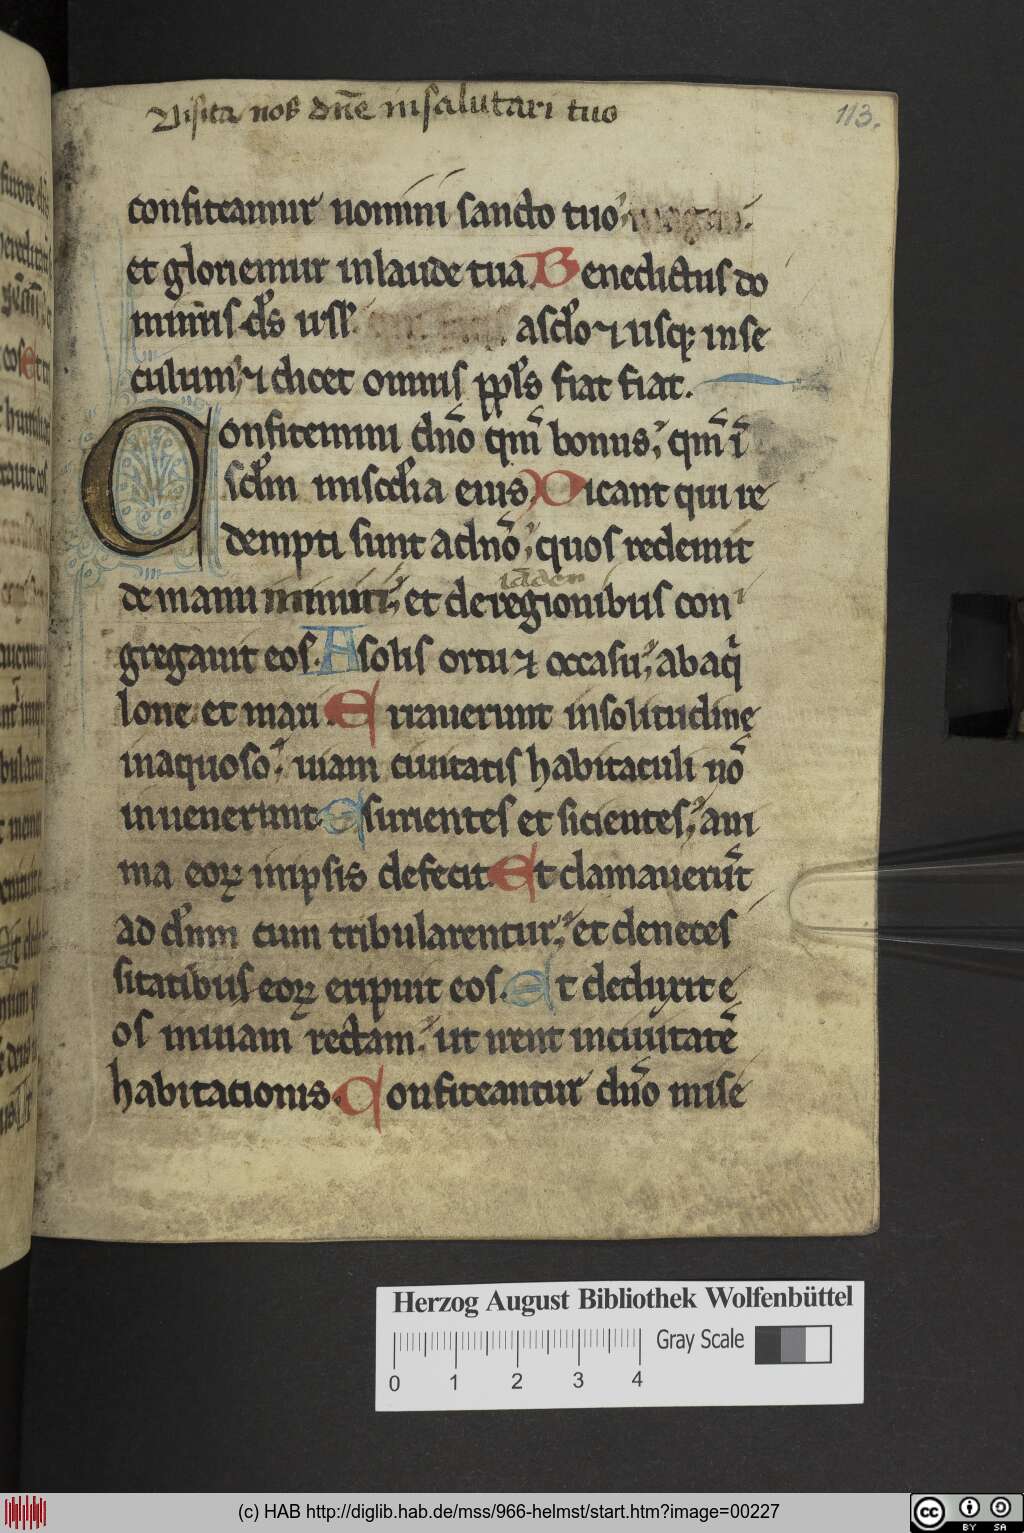 Visita nos dn̄e in salutari tuo
113.
confiteamur nomini sancto tuo
et gloriemur in laude tua Benedictus do
minus ds̄ isrl̄ a scl̄o ⁊ usq; in se
culum; ⁊ dicet omnis ppl̄s fiat fiat.
Confitemini dn̄o qm̄ bonus; qm̄ ī
scl̄m misc̄dia eius Dicant qui re
dempti sunt a dn̄o; quos redemit
de manu inimici; et de regionibus con
gregauit eos. A solis ortu ⁊ occasu; ab aq̇
lone et mari Errauerunt in solitudine
inaquoso; uiam ciuitatis habitaculi nō
inuenerunt Esurientes et sicientes; ani
ma eoꝝ in ipsis defecit. Et clamauerūt
ad dn̄m cum tribularentur; et de neces
sitatibus eoꝝ eripuit eos. Et deduxit e
os in uiam rectam; ut irent in ciuitatē
habitationis. Confiteantur dn̄o mise
Herzog August Bibliothek Wolfenbüttel
Gray Scale
0 1 2 3 4
(c) HAB http://diglib.hab.de/mss/966-helmst/start.htm?image=00227
cc BY SA